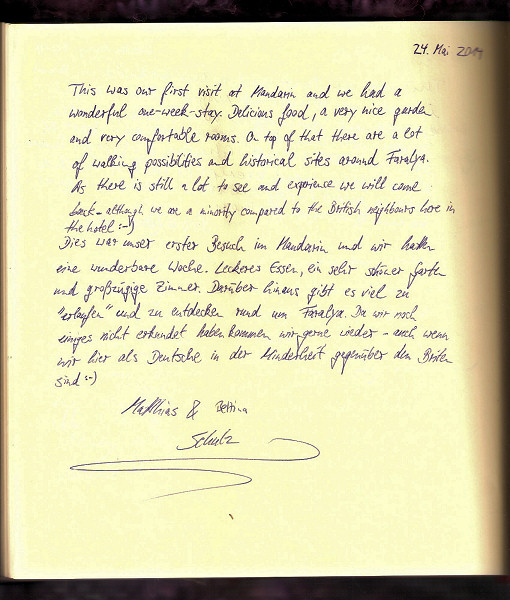 24. Mai 2014
This was our first visit at Mandarin and we had a
wonderful one-week-stay. Delicious food, a very nice garden
and very comfortable rooms. On top of that there are a lot
of walking possibilities and historical sites around Faralya.
As there is still a lot to see and experience we will come
back - although we are a minority compared to the British neighbours here in
the hotel :-)
Dies war unser erster Besuch im Mandarin und wir hatten
eine wunderbare Woche. Leckeres Essen, ein sehr schöner Garten
und großzügige Zimmer. Darüber hinaus gibt es viel zu
"erlaufen" und zu entdecken rund um Faralya. Da wir noch
einiges nicht erkundet haben kommen wir gerne wieder - auch wenn
wir hier als Deutsche in der Minderheit gegenüber den Briten
sind :-)
Matthias & Bettina
Schulz